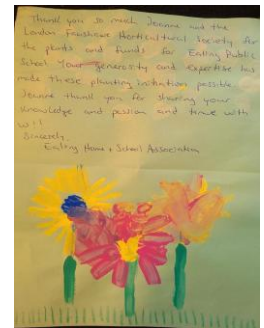 Thank you so much Joanne and the
London Fanshawe Horticultural Society for
the plants and funds for Ealing Public
School. Your generosity and expertise has
made these planting initiatives possible.
Joanne thank you for sharing your
knowledge and passion and time with
us!!
Sincerely
Ealing Home + School Association